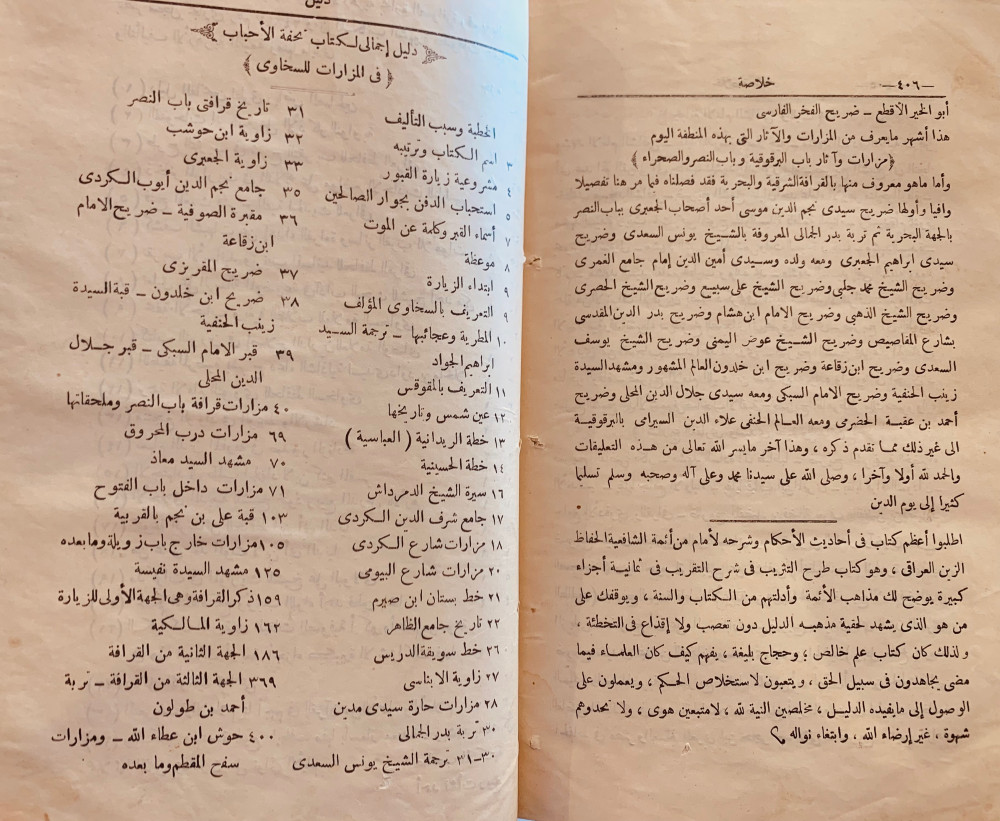 —٤٠٦— خلاصة
أبو الخير الأقطع – ضريح الفخر الفارسى
هذا أشهر مايعرف من المزارات والآثار التى بهذه المنطقة اليوم
﴿مزارات وآثار باب البرقوقية وباب النصر والصحراء﴾
وأما ماهو معروف منها بالقرافة الشرقية والبحرية فقد فصلناه فيما مر هنا تفصيلا
وافيا وأولها ضريح سيدى نجم الدين موسى أحد أصحاب الجعبرى بباب النصر
بالجهة البحرية ثم تربة بدر الجمالى المعروفة بالشيخ يونس السعدى وضريح
سيدى ابراهيم الجعبرى ومعه ولده وسيدى أمين الدين إمام جامع الغمرى
وضريح الشيخ محمد جلبى وضريح الشيخ على سبيع وضريح الشيخ الحصرى
وضريح الشيخ الذهبى وضريح الامام ابن هشام وضريح بدر الدين المقدسى
بشارع المقاصيص وضريح الشيخ عوض اليمنى وضريح الشيخ يوسف
السعدى وضريح ابن زقاعة وضريح ابن خلدون العالم المشهور ومشهد السيدة
زينب الحنفية وضريح الامام السبكى ومعه سيدى جلال الدين المحلى وضريح
أحمد بن عقبة الحضرى ومعه العالم الحنفى علاء الدين السيرامى بالبرقوقية
الى غير ذلك مما تقدم ذكره ، وهذا آخر مايسر الله تعالى من هذه التعليقات
والحمد لله أولا وآخرا ، وصلى الله على سيدنا محمد وعلى آله وصحبه وسلم تسليما
كثيرا إلى يوم الدين .
اطلبوا أعظم كتاب فى أحاديث الأحكام وشرحه لأمام من أئمة الشافعية الحفاظ
الزين العراقى ، وهو كتاب طرح التثريب فى شرح التقريب فى ثمانية أجزاء
كبيرة يوضح لك مذاهب الأئمة وأدلتهم من الكتاب والسنة ، ويوقفك على
من هو الذى يشهد لحقية مذهبه الدليل دون تعصب ولا إقذاع فى التخطئة ،
ولذلك كان كتاب علم خالص ؛ وحجاج بليغة ، يفهم كيف كان العلماء فيما
مضى يجاهدون فى سبيل الحق ، ويتعبون لاستخلاص الحكم ، ويعملون على
الوصول إلى مايفيده الدليل ، مخلصين النية لله ، لامتبعين هوى ، ولا تحدوهم
شهوة ، غير إرضاء الله ، وابتغاء نواله
دليل إجمالى لكتاب تحفة الأحباب
﴿ فى المزارات للسخاوى ﴾
الخطبة وسبب التأليف
٣ اسم الكتاب وترتيبه
٤ مشروعية زيارة القبور
٥ استحباب الدفن بجوار الصالحين
٧ أسماء القبر وكلمة عن الموت
٨ موعظة
٩ ابتداء الزيارة
٩ التعريف بالسخاوى المؤلف
١٠ المطرية وعجائبها – ترجمة السيد
ابراهيم الجواد
١١ التعريف بالمقوقس
١٢ عين شمس وتاريخها
١٣ خطة الريدانية ( العباسية )
١٤ خطة الحسينية
١٦ سيرة الشيخ الدمرداش
١٧ جامع شرف الدين الكردى
١٨ مزارات شارع الكردى
٢٠ مزارات شارع البيومى
٢١ خط بستان ابن صيرم
٢٢ تاريخ جامع الظاهر
٢٦ خط سويقة الدريس
٢٧ زاوية الابناسى
٢٨ مزارات حارة سيدى مدين
٣٠ تربة بدر الجمالى
٣٠–٣١ ترجمة الشيخ يونس السعدى
٣١ تاريخ قرافتى باب النصر
٣٢ زاوية ابن حوشب
٣٣ زاوية الجعبرى
٣٥ جامع نجم الدين أيوب الكردى
٣٦ مقبرة الصوفية – ضريح الامام
ابن زقاعة
٣٧ ضريح المقريزى
٣٨ ضريح ابن خلدون – قبة السيدة
زينب الحنفية
٣٩ قبر الامام السبكى – قبر جلال
الدين المحلى
٤٠ مزارات قرافة باب النصر وملحقاتها
٦٩ مزارات درب المحروق
٧٠ مشهد السيد معاذ
٧١ مزارات داخل باب الفتوح
١٠٣ قبة على بن نجم بالقربية
١٠٥ مزارات خارج باب زويلة وما بعده
١٢٥ مشهد السيدة نفيسة
١٥٩ ذكر القرافة وهى الجهة الأولى للزيارة
١٦٢ زاوية المالكية
١٨٦ الجهة الثانية من القرافة
٣٦٩ الجهة الثالثة من القرافة – تربة
أحمد بن طولون
٤٠٠ حوش ابن عطاء الله – ومزارات
سفح المقطم وما بعده